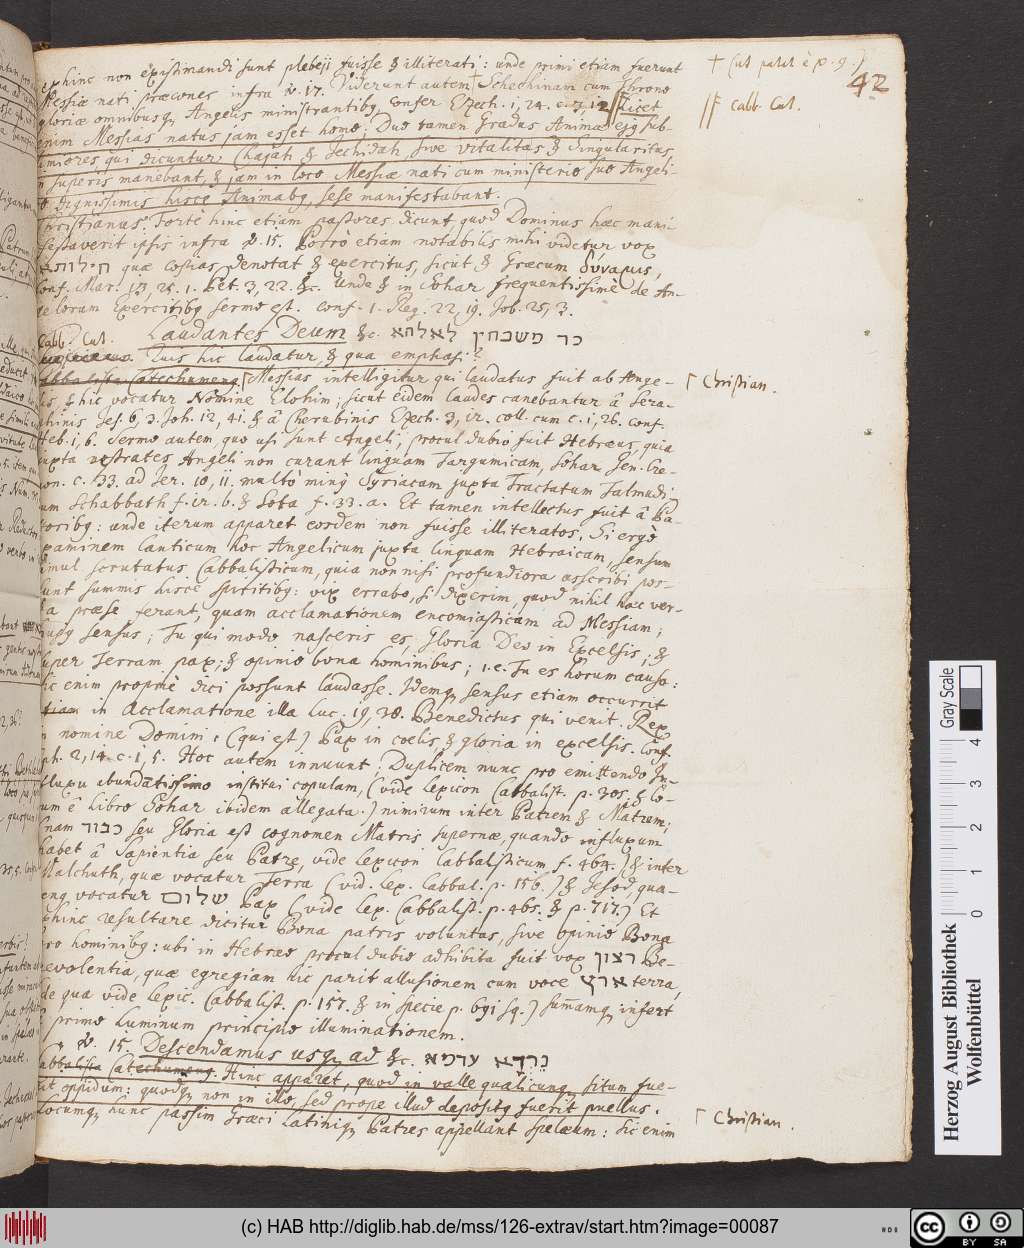 hinc non existimandi sunt plebeji fuisse & illiterati: unde primi etiam fuerunt
Messiæ nati præcones infra v. 17. Viderunt autem + Schechinam cum throno
gloriæ omnibusq Angelis ministrantibq, confer Ezech. 1, 24. c. 3, 12 Licet
enim Messias natus jam esset homo: Duo tamen Gradus Animæ ejq sub-
limiores qui dicuntur Chajah & Jechidah sive vitalitas & Singularitas,
in superis manebant, & jam in loco Messiæ nati cum ministerio suo Angeli-
co dignissimis hisce Animabq sese manifestabant.
Christianus. Fortè hinc etiam pastores dicunt quod Dominus hæc mani-
festaverit ipsis infra v. 15. Porrò etiam notabilis mihi videtur vox
חילותא quæ copias denotat & exercitus, sicut & Græcum δύναμις,
conf. Mar. 13, 25. 1. Pet. 3, 22. &c. Unde & in Sohar frequentissime de An-
gelorum Exercitibq sermo est. conf. 1. Reg. 22, 19. Job. 25, 3.
Cabb. Cat. Laudantes Deum &c. כד משבחין לאלהא
Quis hic laudatur & qua emphasi?
Cabbalista Catechumenq Messias intelligitur qui laudatus fuit ab Ange-
lis, & hic vocatur Nomine Elohim; sicut eidem laudes canebantur â Sera-
phinis Jes. 6, 3. Joh. 12, 41. & â Cherubinis Ezech. 3, 12. coll. cum c. 1, 26. conf.
Heb. 1, 6. Sermo autem quo usi sunt Angeli, procul dubio fuit Hebræus, quia
juxta nostrates Angeli non curant linguam Targumicam, Sohar Gen. Cre-
mon. c. 33. ad Jer. 10, 11. multò minq Syriacam juxta Tractatum Talmudi-
cum Schabbath f. 12. b. & Sota f. 33. a. Et tamen intellectus fuit â Pa-
storibq: unde iterum apparet eosdem non fuisse illiteratos. Si ergò
examinem Canticum hoc Angelicum juxta linguam Hebraicam, sensum
simul scrutatus Cabbalisticum, quia non nisi profundiora asscribi pos-
sunt summis hisce Spiritibq: vix errabo, si dixerim, quod nihil hæc ver-
ba præ se ferant, quam acclamationem encomiasticam ad Messiam;
hujusq sensus; Tu qui modo nasceris es, Gloria Deo in Excelsis; &
super Terram pax; & opinio bona hominibus; i.e. Tu es horum causa:
sic enim propriè dici possunt laudasse. Idemq sensus etiam occurrit
etiam in Acclamatione illa Luc. 19, 38. Benedictus qui venit Rex
in nomine Domini, (qui est) Pax in cœlis & gloria in excelsis. Conf.
Eph. 2, 14. c. 1, 5. Hoc autem innuunt, Duplicem nunc pro emittendo In-
fluxu abundantissimo institui copulam, (vide Lexicon Cabbalist. p. 305. & lo-
cum è libro Sohar ibidem allegata.) nimirum inter Patrem & Matrem;
nam כבוד seu Gloria est cognomen Matris supernæ, quando influxum
habet â Sapientia seu Patre, vide Lexicon Cabbalisticum f. 464.) & inter
Malchuth, quæ vocatur Terra (vid. Lex. Cabbal. p. 156.) & Jesod, qua-
tenq vocatur שלום Pax (vide Lex. Cabbalist. p. 465. & p. 717.) Et
exhinc resultare dicitur Bona patris voluntas, sive opinio Bona
pro hominibq: ubi in Hebræo procul dubio adhibita fuit vox רצון Be-
nevolentia, quæ egregiam hic parit allusionem cum voce ארץ terra,
de qua vide Lexic. Cabbalist. p. 157. & in specie p. 691 sq.) summamq infert
primo Luminum principio illuminationem.
v. 15. Descendamus usq ad &c. נרדא עדמא
Cabbalista Catechumenq. Hinc apparet, quod in valle qualicunq situm fue-
rit oppidum: quodq non in illo, sed prope illud depositq fuerit puellus.
Locumq hunc passim Græci Latiniq Patres appellant spelæum: sic enim
+ Cut patet è p. 9.)
42
// Cabb. Cat.
Γ Christian.
Γ Christian.
Gray Scale
0 1 2 3 4
Herzog August Bibliothek
Wolfenbüttel
(c) HAB http://diglib.hab.de/mss/126-extrav/start.htm?image=00087
cc BY SA